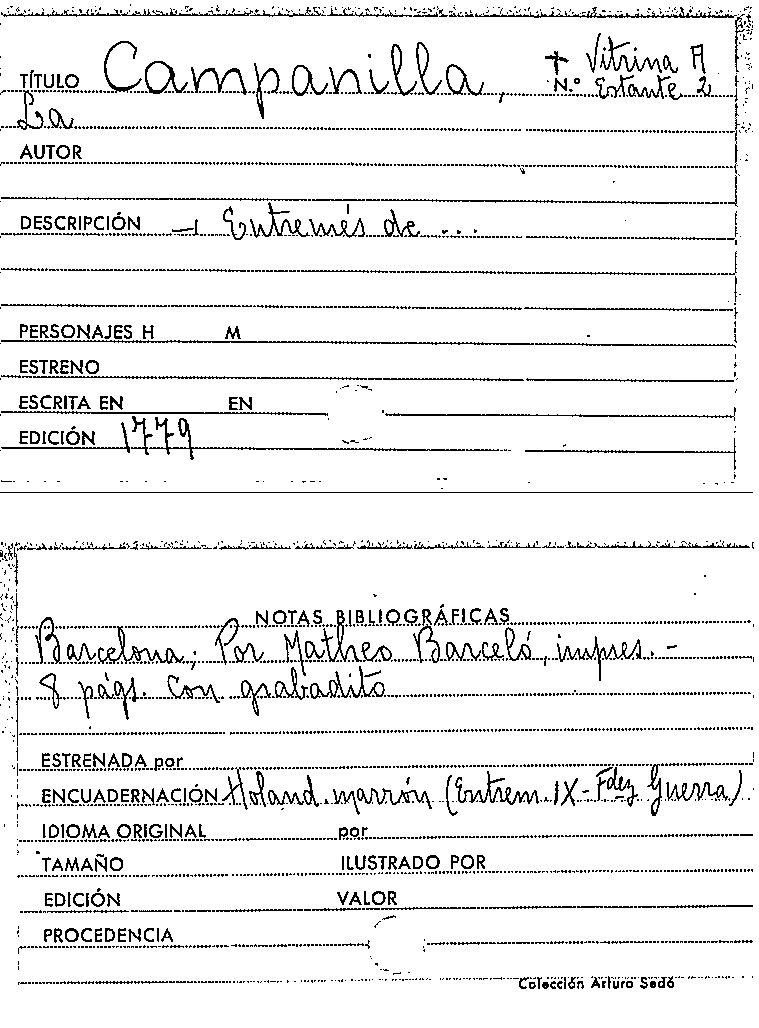 TÍTULO Campanilla, + Vitrina A
N.º Estante 2
La
AUTOR
DESCRIPCIÓN → Entremés de ...
PERSONAJES H M
ESTRENO
ESCRITA EN EN
EDICIÓN 1779
NOTAS BIBLIOGRÁFICAS
Barcelona; Por Matheo Barceló, impres. -
8 págs. con grabadito
ESTRENADA por
ENCUADERNACIÓN Holand. marrón (Entrem. IX - Fdez Guerra)
IDIOMA ORIGINAL por
TAMAÑO ILUSTRADO POR
EDICIÓN VALOR
PROCEDENCIA
Colección Arturo Sedó